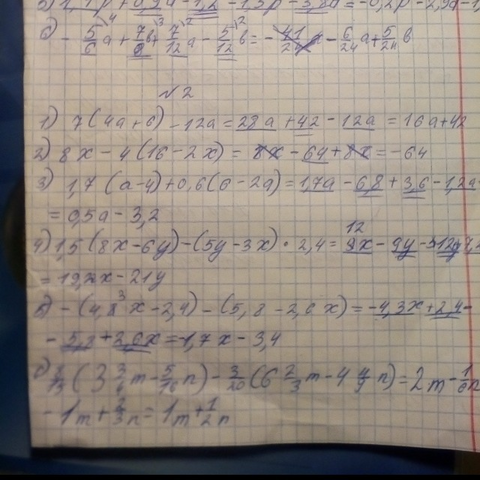 б) - 5/6 a + 7/8 в + 7/12 a - 5/12 в = - 6/24 a + 5/24 в
№2
1) 7(4a+6) - 12a = 28a + 42 - 12a = 16a + 42
2) 8x - 4(16 - 2x) = 8x - 64 + 8x = -64
3) 1,7(a-4) + 0,6(6-2a) = 1,7a - 6,8 + 3,6 - 1,2a
= 0,5a - 3,2
4) 1,5(8x-6y) - (5y-3x) · 2,4 = 12x - 9y - 12y
= 19,2x - 21y
5) - (4,3x - 2,4) - (5,8 - 2,6x) = -4,3x + 2,4 -
- 5,8 + 2,6x = 1,7x - 3,4
m - 5/16 n) - 3/20 (6 2/3 m - 4 4/9 n) = 2m - 1/6 n
- 1m + 2/3 n = 1m + 1/2 n